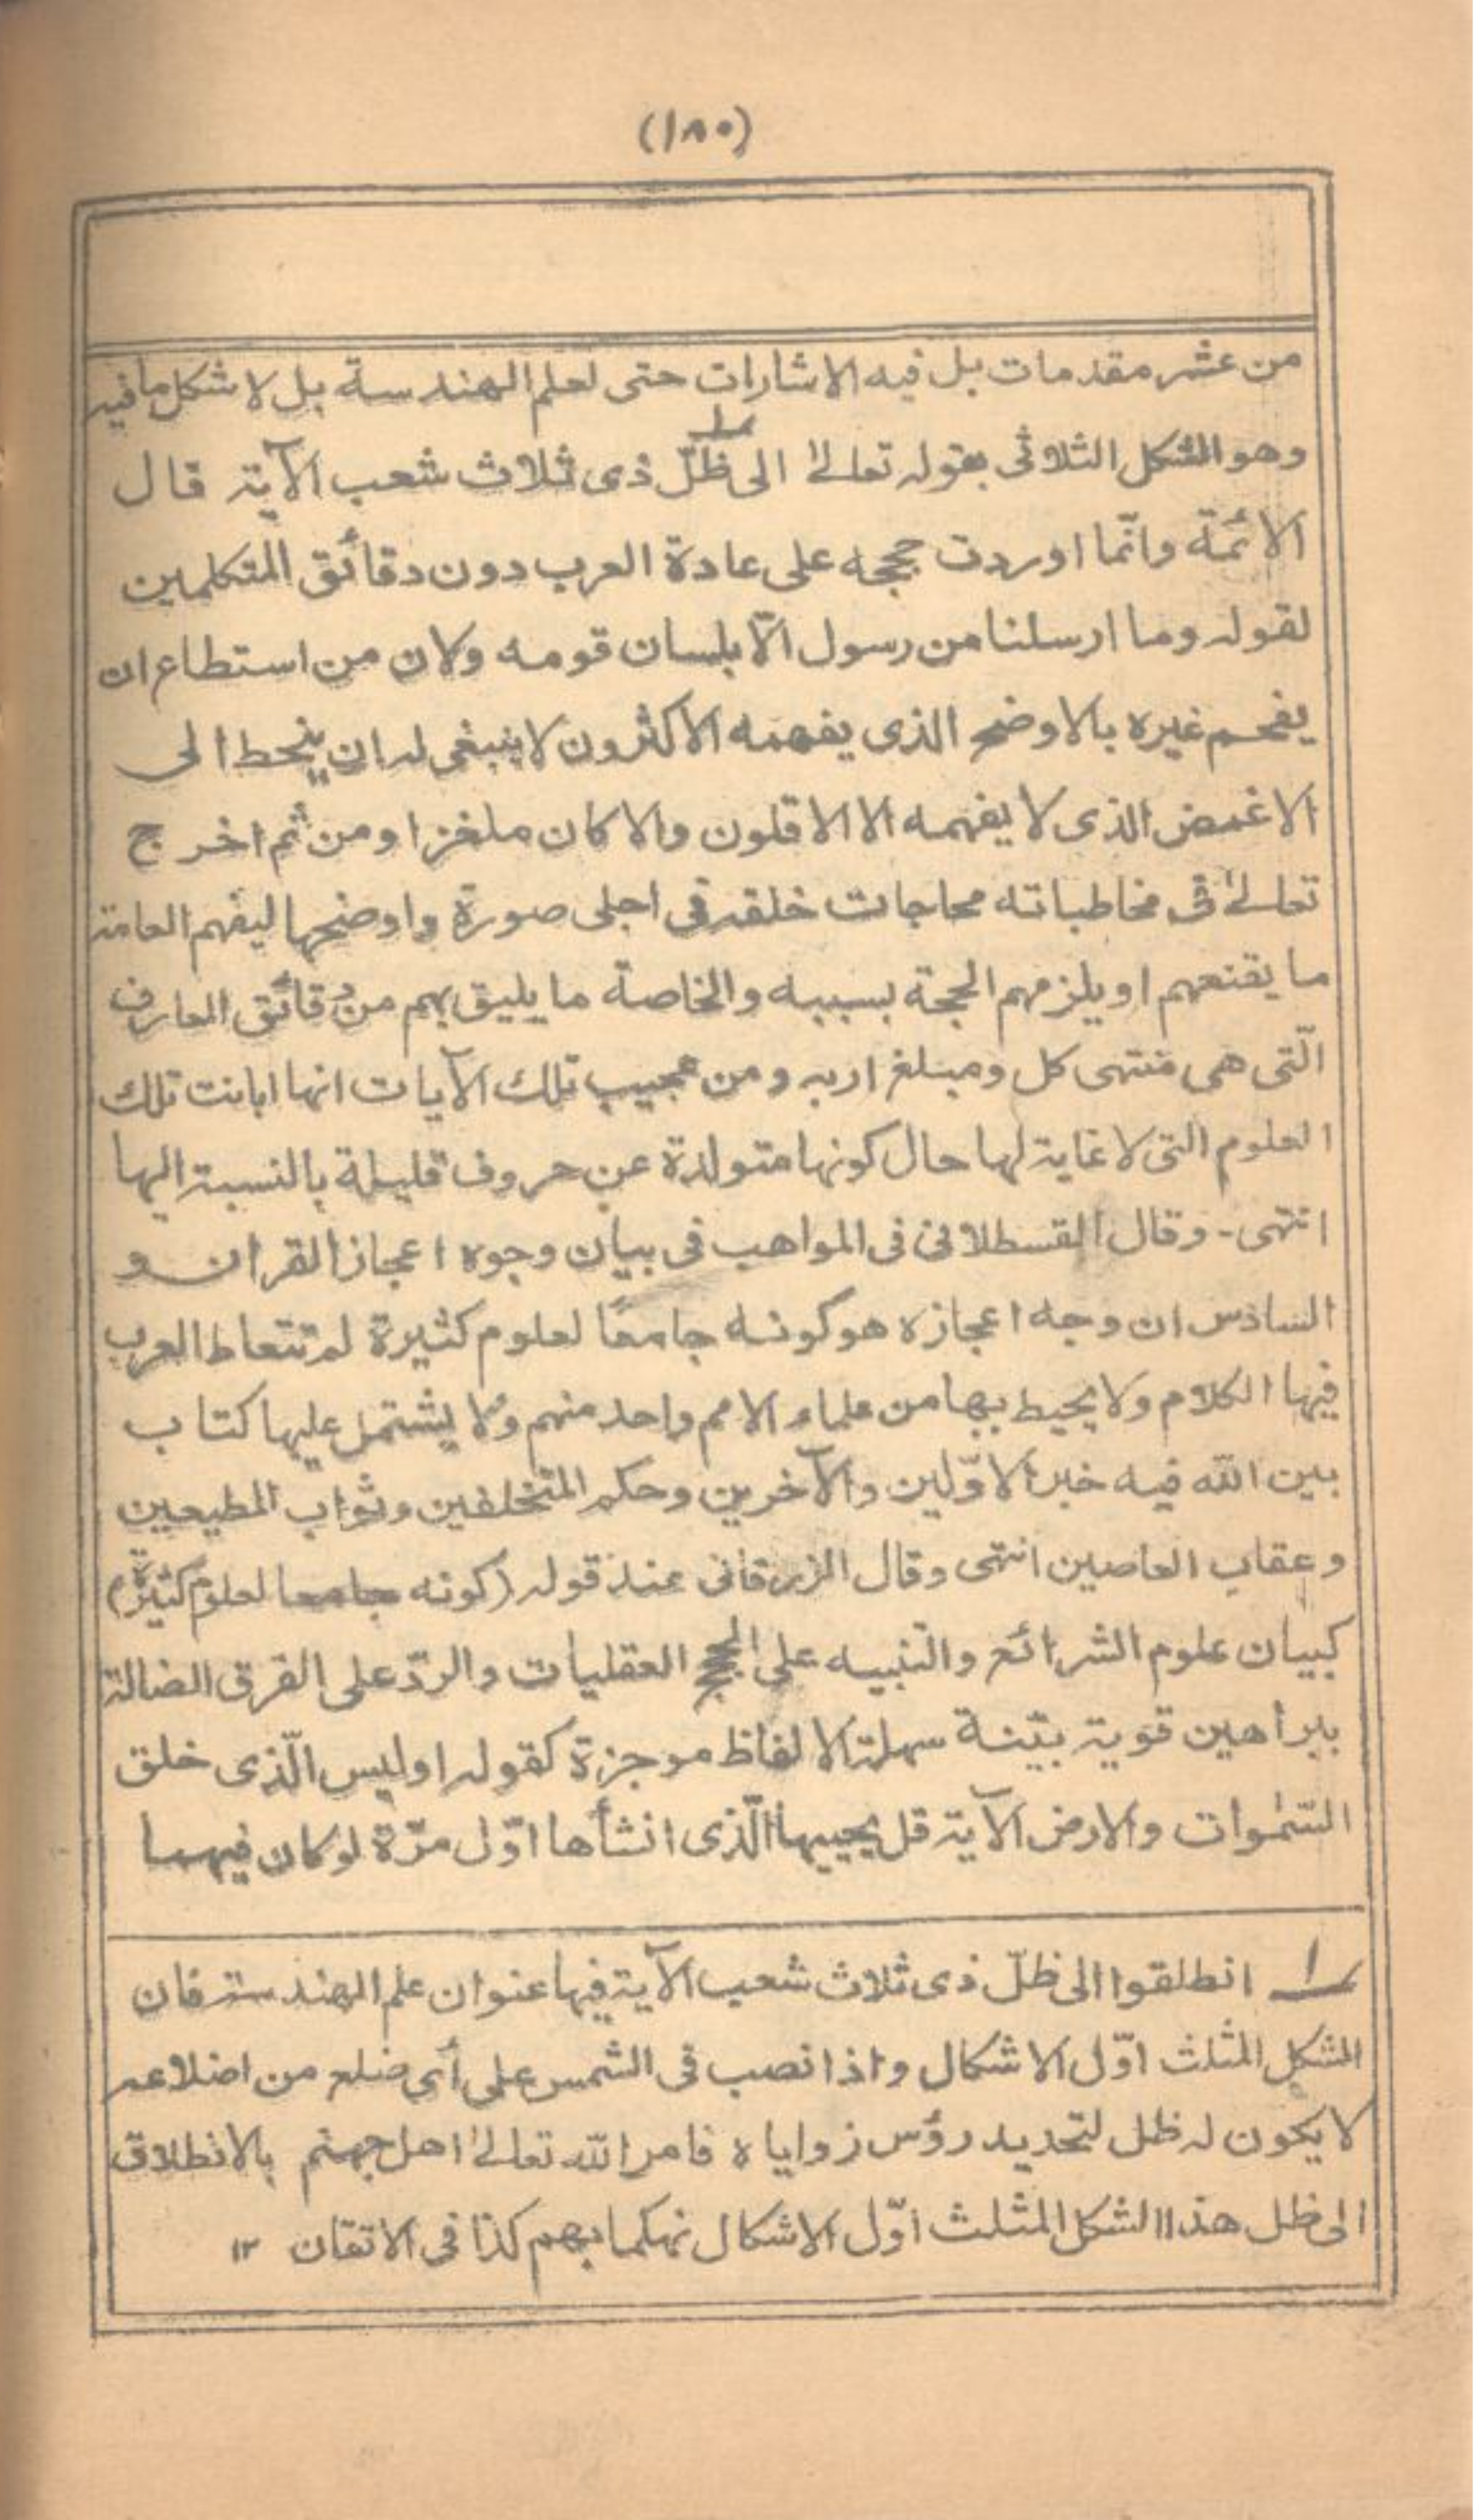 (١٨٠)
من عشر مقدمات بل فيه الاشارات حتى لعلم الهندسة بل لا شكل ما فيه
وهو الشكل الثلاثى بقوله تعالىٰ الى ظلّ ذى ثلاث شعب الآية قال
الائمّة وانّما اوردت حججه على عادة العرب دون دقائق المتكلمين
لقوله وما ارسلنا من رسول الّا بلسان قومه ولان من استطاع ان
يفحم غيره بالاوضح الذى يفهمه الاكثرون لا ينبغى له ان ينحط الى
الاغمض الذى لا يفهمه الا الاقلون والا كان ملغزا ومن ثم اخرج
تعالىٰ فى مخاطباته محاجات خلقه فى اجلى صورة واوضحها ليفهم العامة
ما يقنعهم او يلزمهم الحجة بسببه والخاصة ما يليق بهم من دقائق المعارف
الّتى هى منتهى كل ومبلغ اربه ومن عجيب تلك الآيات انها ابانت تلك
العلوم التى لا غاية لها حال كونها متولدة عن حروف قليلة بالنسبة اليها
انتهى - وقال القسطلانى فى المواهب فى بيان وجوه اعجاز القران و
السادس ان وجه اعجازه هو كونه جامعًا لعلوم كثيرة لم تتعاط العرب
فيها الكلام ولا يحيط بها من علماء الامم واحد منهم ولا يشتمل عليها كتاب
بين الله فيه خبر الاوّلين والآخرين وحكم المتخلفين وثواب المطيعين
وعقاب العاصين انتهى وقال الزرقانى عند قوله (كونه جامعا لعلوم كثيرة)
كبيان علوم الشرائع والتنبيه على الحجج العقليات والردّ على الفرق الضالة
ببراهين قوية بيّنة سهلة الالفاظ موجزة كقوله اوليس الّذى خلق
السّمٰوات والارض الآية قل يحييها الّذى انشأها اوّل مرّة لو كان فيهما
١ انطلقوا الى ظلّ ذى ثلاث شعب الآية فيها عنوان علم الهندسة فان
الشكل المثلث اوّل الاشكال واذا نصب فى الشمس على أى ضلع من اضلاعه
لا يكون له ظل لتحديد رؤس زواياه فامر الله تعالىٰ اهل جهنم بالانطلاق
الى ظل هذا الشكل المثلث اوّل الاشكال تهكما بهم كذا فى الاتقان ١٢